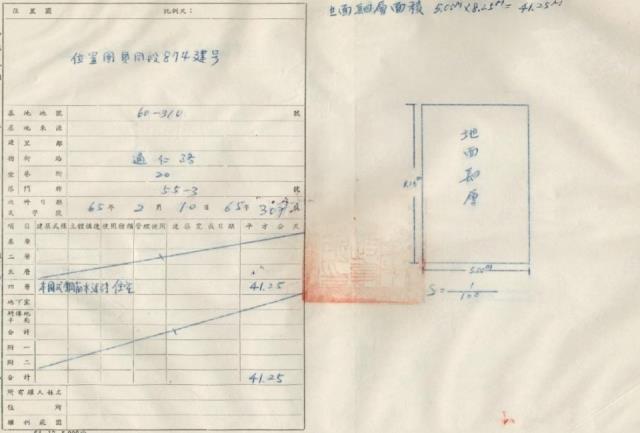 位置圖
比例尺：
位置圖見同段874建号
基地地號 60-310 號
基地來源
建里鄰
物街路 通仁路
坐巷弄 20
落門牌 55-3 號
收件日期 65年2月10日65年
字號
項目 建築式樣 主體構造 使用種類 管理使用 建築完成日期 平方公尺
基層
二層
三層
四層 本國式鋼筋水泥磚 住宅 41.25
地下室
騎樓地平面
合計
附一
附二
合計 41.25
所有權人姓名
住所
權利範圍
面積 5.00M×8.25M=41.25M
地面
層
8.25M
5.00M
S=1/100